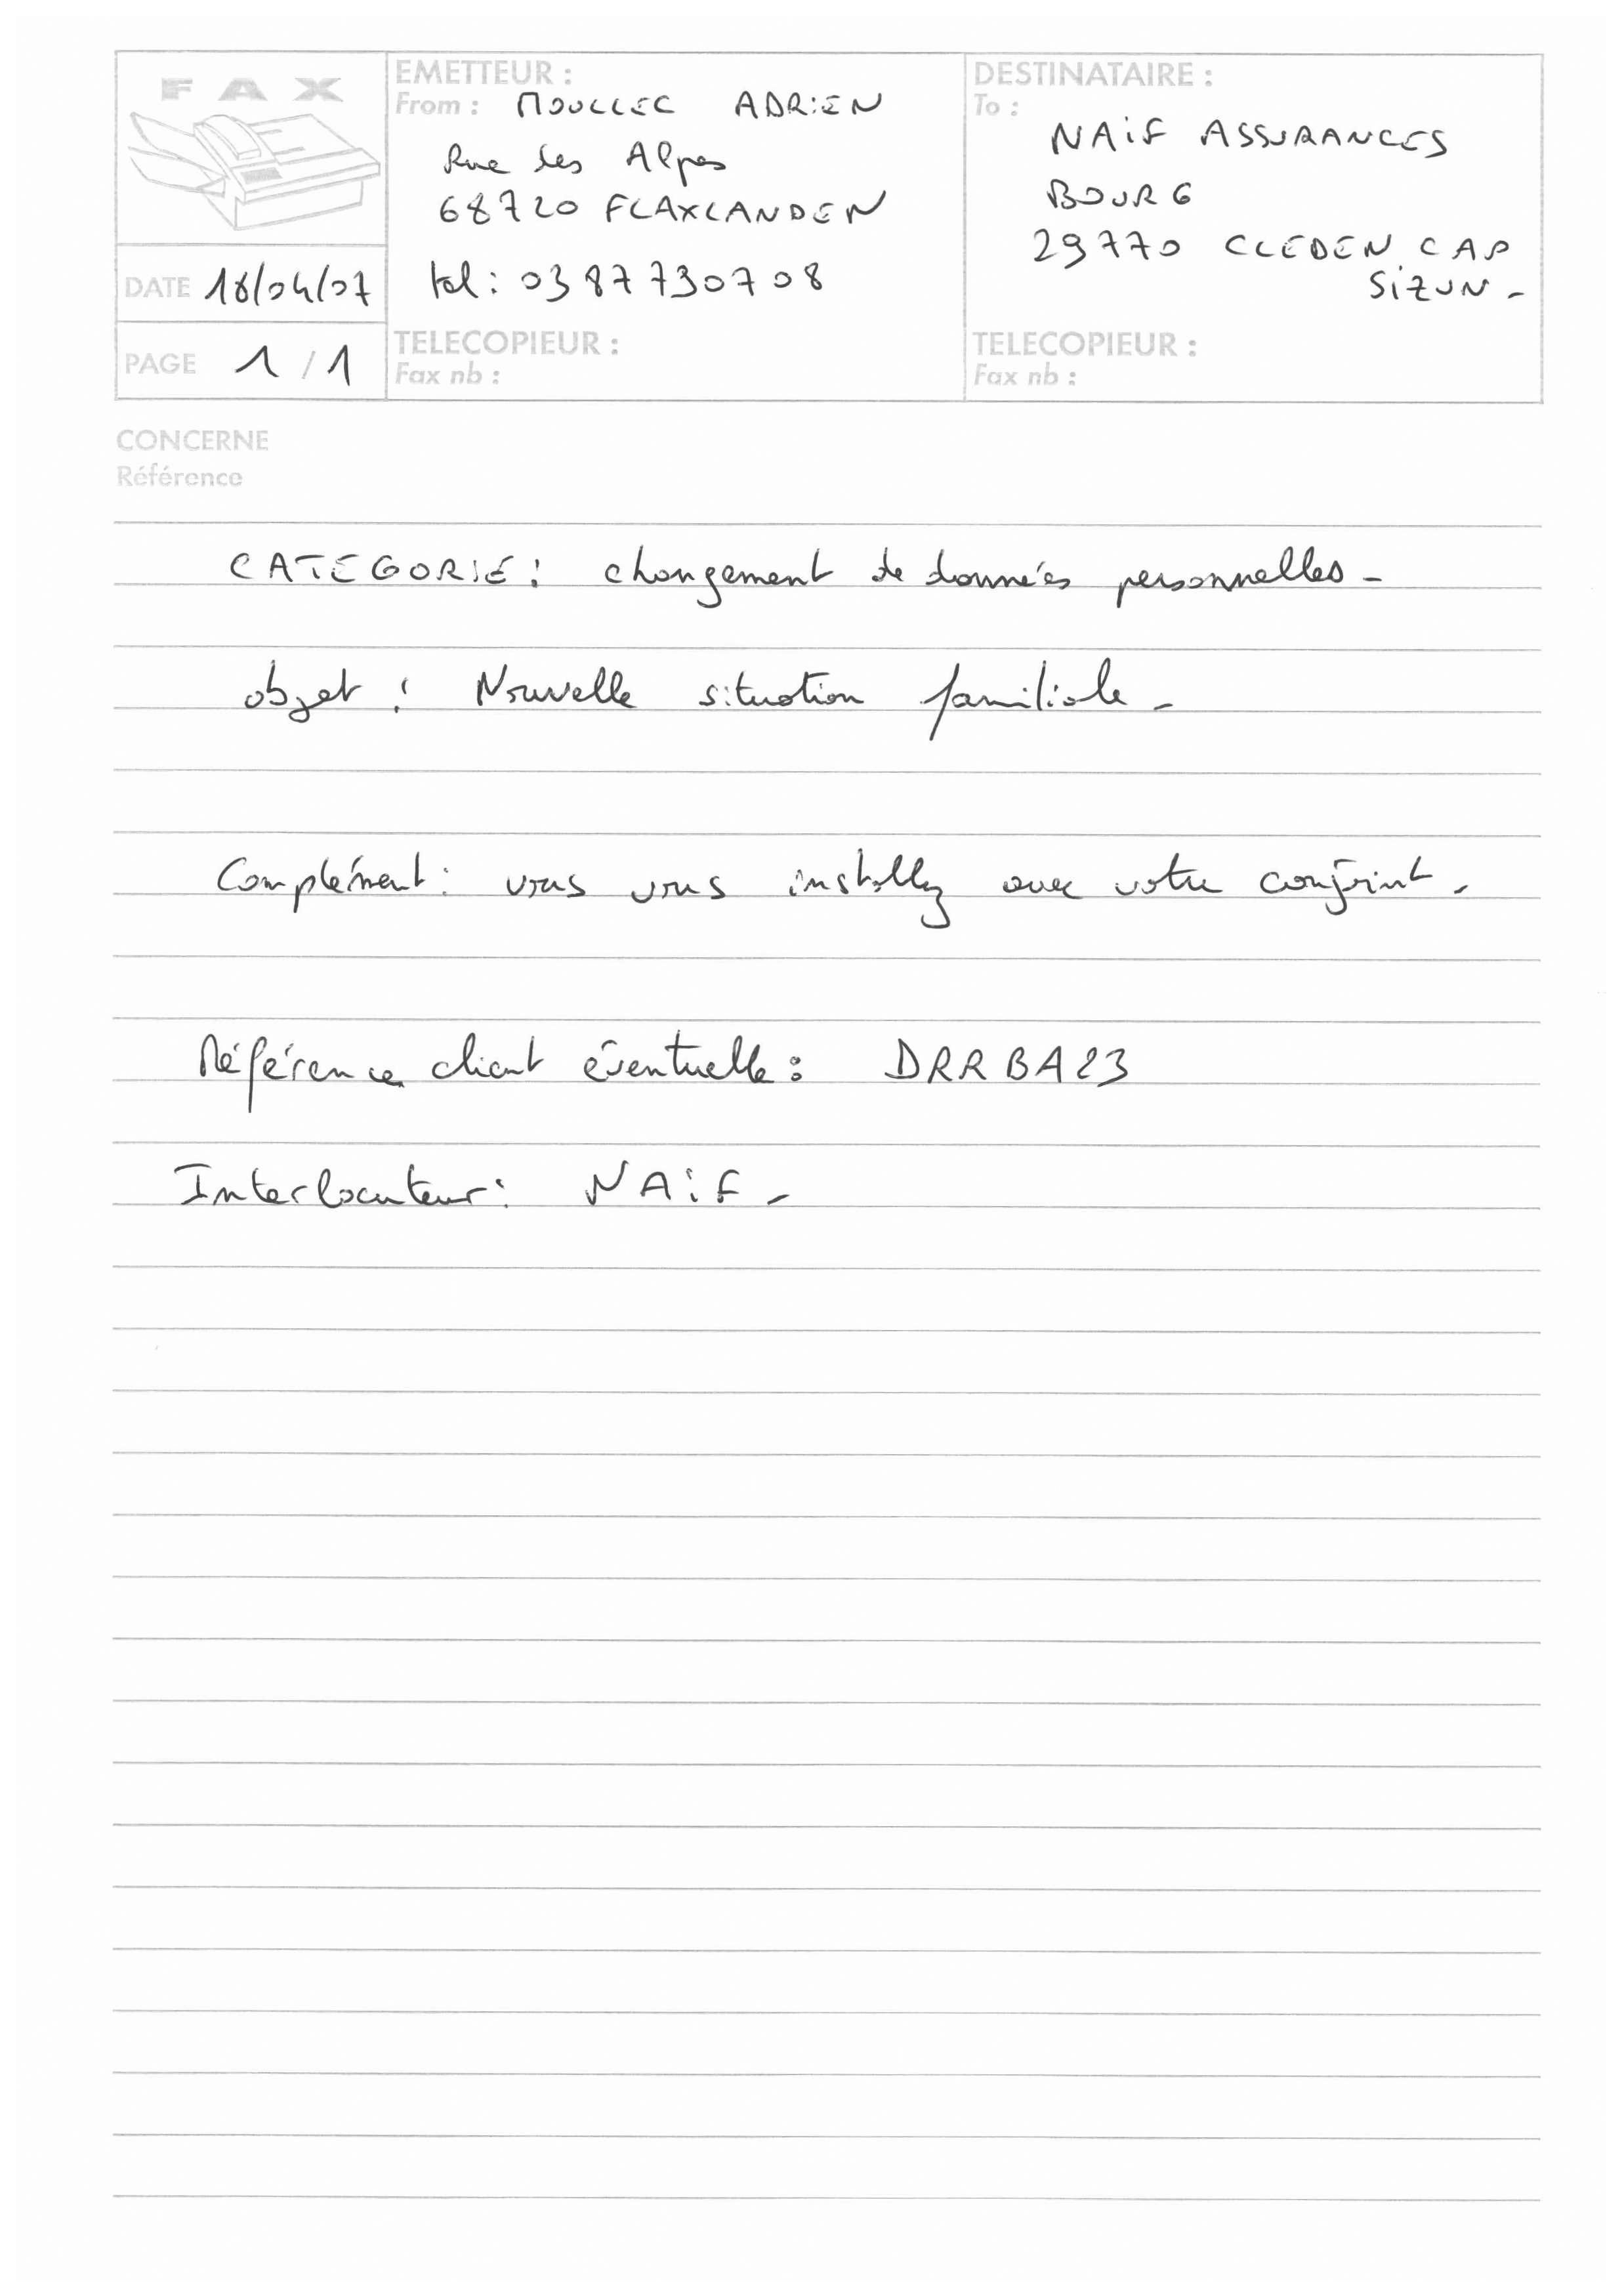 FAX
EMETTEUR :
From : MOULLEC ADRIEN
Rue des Alpes
68720 FLAXLANDEN
tel : 0387730708
TELECOPIEUR :
Fax nb :
DESTINATAIRE :
To :
NAiF ASSURANCES
BOURG
29770 CLEDEN CAP
SiZUN -
TELECOPIEUR :
Fax nb :
DATE 18/04/07
PAGE 1 / 1
CONCERNE
Référence
CATEGORIE : changement de données personnelles -
objet : Nouvelle situation familiale -
Complément : vous vous installez avec votre conjoint -
Référence client éventuelle : DRRBA23
Interlocuteur : NAiF -